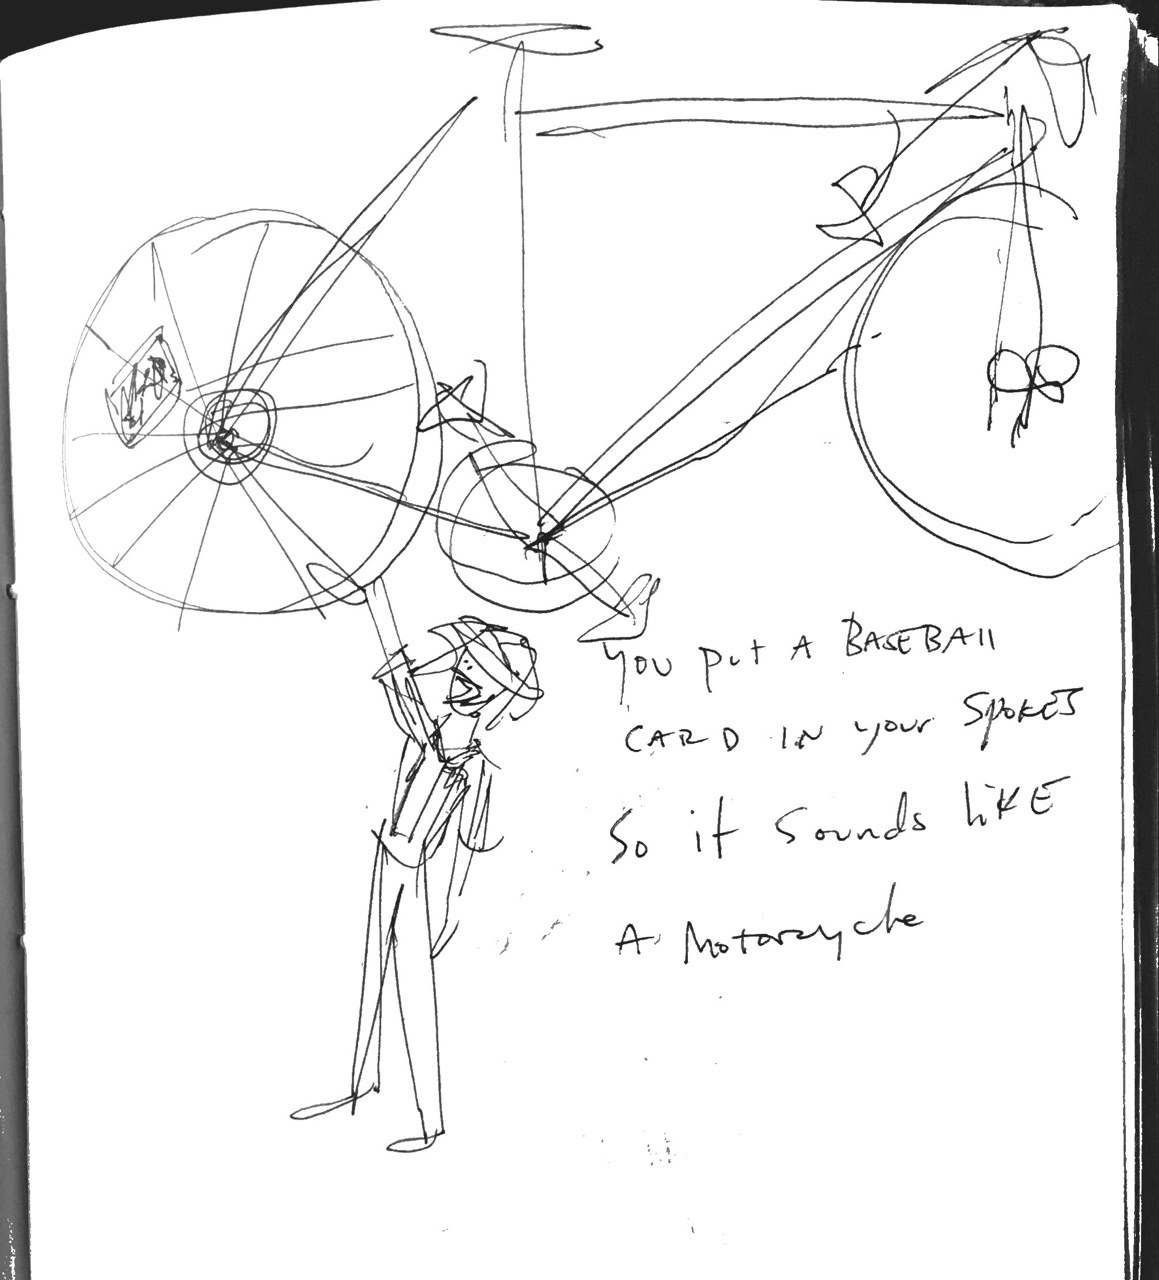 You put A BASEBAll
CARD IN your SPOKES
So it Sounds liKE
A Motorcycle